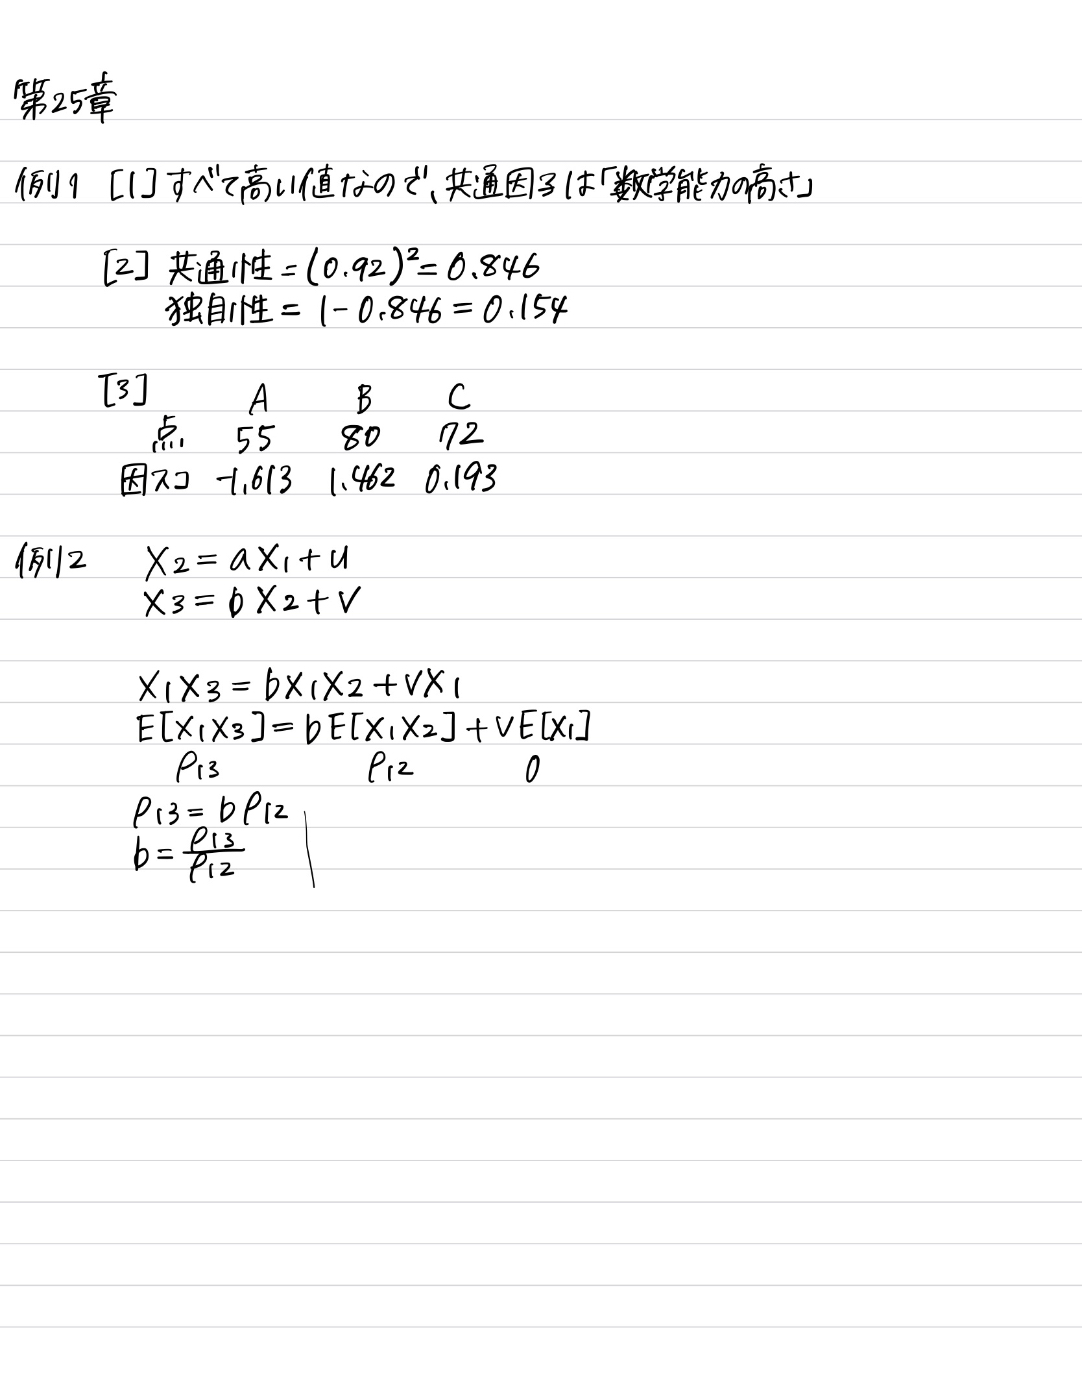 第25章
例1 [1] すべて高い値なので、共通因子は「数学能力の高さ」
[2] 共通性 = (0.92)² = 0.846
独自性 = 1 - 0.846 = 0.154
[3] A B C
点 55 80 72
因スコ -1.613 1.462 0.193
例2 X₂ = aX₁ + u
X₃ = bX₂ + v
X₁X₃ = bX₁X₂ + vX₁
E[X₁X₃] = bE[X₁X₂] + vE[X₁]
ρ₁₃ ρ₁₂ 0
ρ₁₃ = bρ₁₂
b = ρ₁₃/ρ₁₂